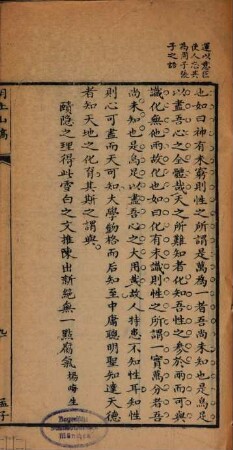 運以意匠
使人忘其
為周子張
子之語
也如曰神有未窮則性之所謂是萬為一者吾尚未知也是烏足
以盡吾心之全體哉天之所難知者化知吾性之参於兩而可與
識化無他兩故化也如曰化有未識則性之所謂一實萬分者吾
尚未知也是烏足以盡吾心之大用哉故人特患不知性耳知性
則心可盡而天可知大學物格而后知至中庸聰明聖知達天德
者知天地之化育其斯之謂與
賾隐之理得此雪白之文推陳出新絶無一點腐氣 楊晦生
孟子